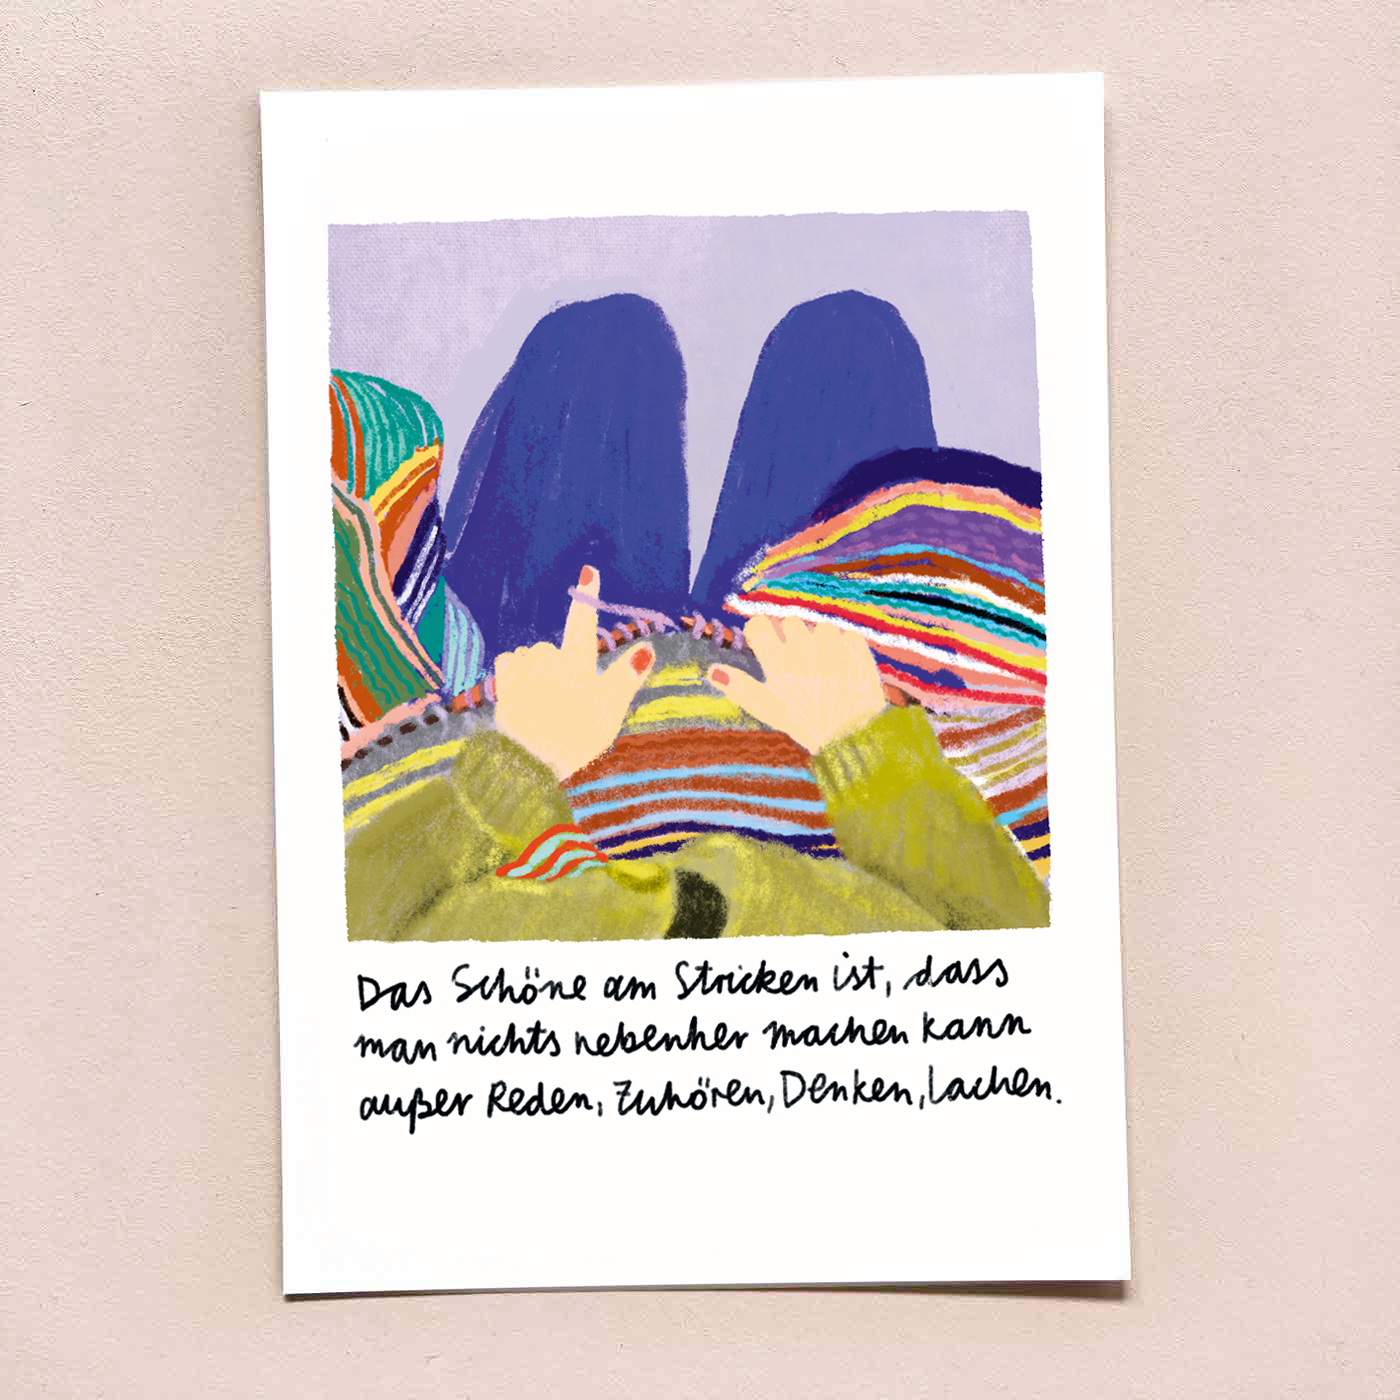 Das Schöne am Stricken ist, dass
man nichts nebenher machen kann
außer Reden, Zuhören, Denken, Lachen.